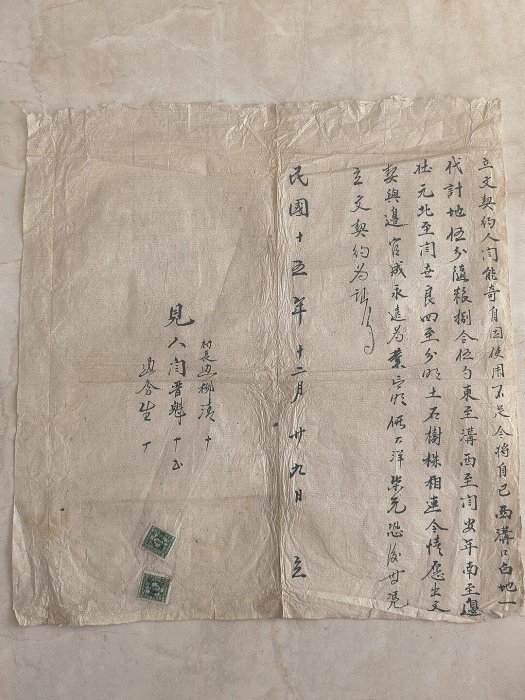 立文契約人闫能奇自因使用不足今将自己西溝口白地一
代計地伍分隨粮捌合伍勺東至溝西至闫安年南至邊
壮元北至闫世良四至分明土石樹株相連今情愿出文
契與邊官成永遠为業言明價大洋柒元恐後世凭
立文契約为証
民國十五年十二月廿九日 立
村長边柳清 十
見人闫晋魁 十
边合生 十